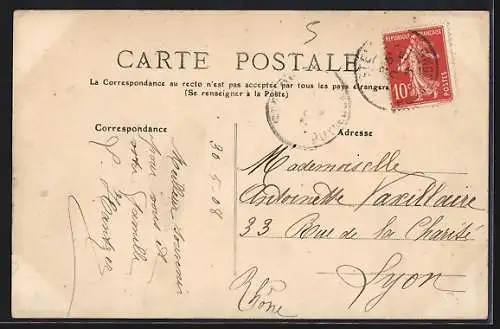 5
CARTE POSTALE
La Correspondance au recto n'est pas acceptée par tous les pays étrangers
(Se renseigner à la Poste)
REPUBLIQUE FRANÇAISE
10c
POSTES
Correspondance
Adresse
30-5-08
Meilleur souvenir
pour vous et
votre famille
Mademoiselle
Antoinette Vaxillaire
33 Rue de la Charité
Lyon
Rhône